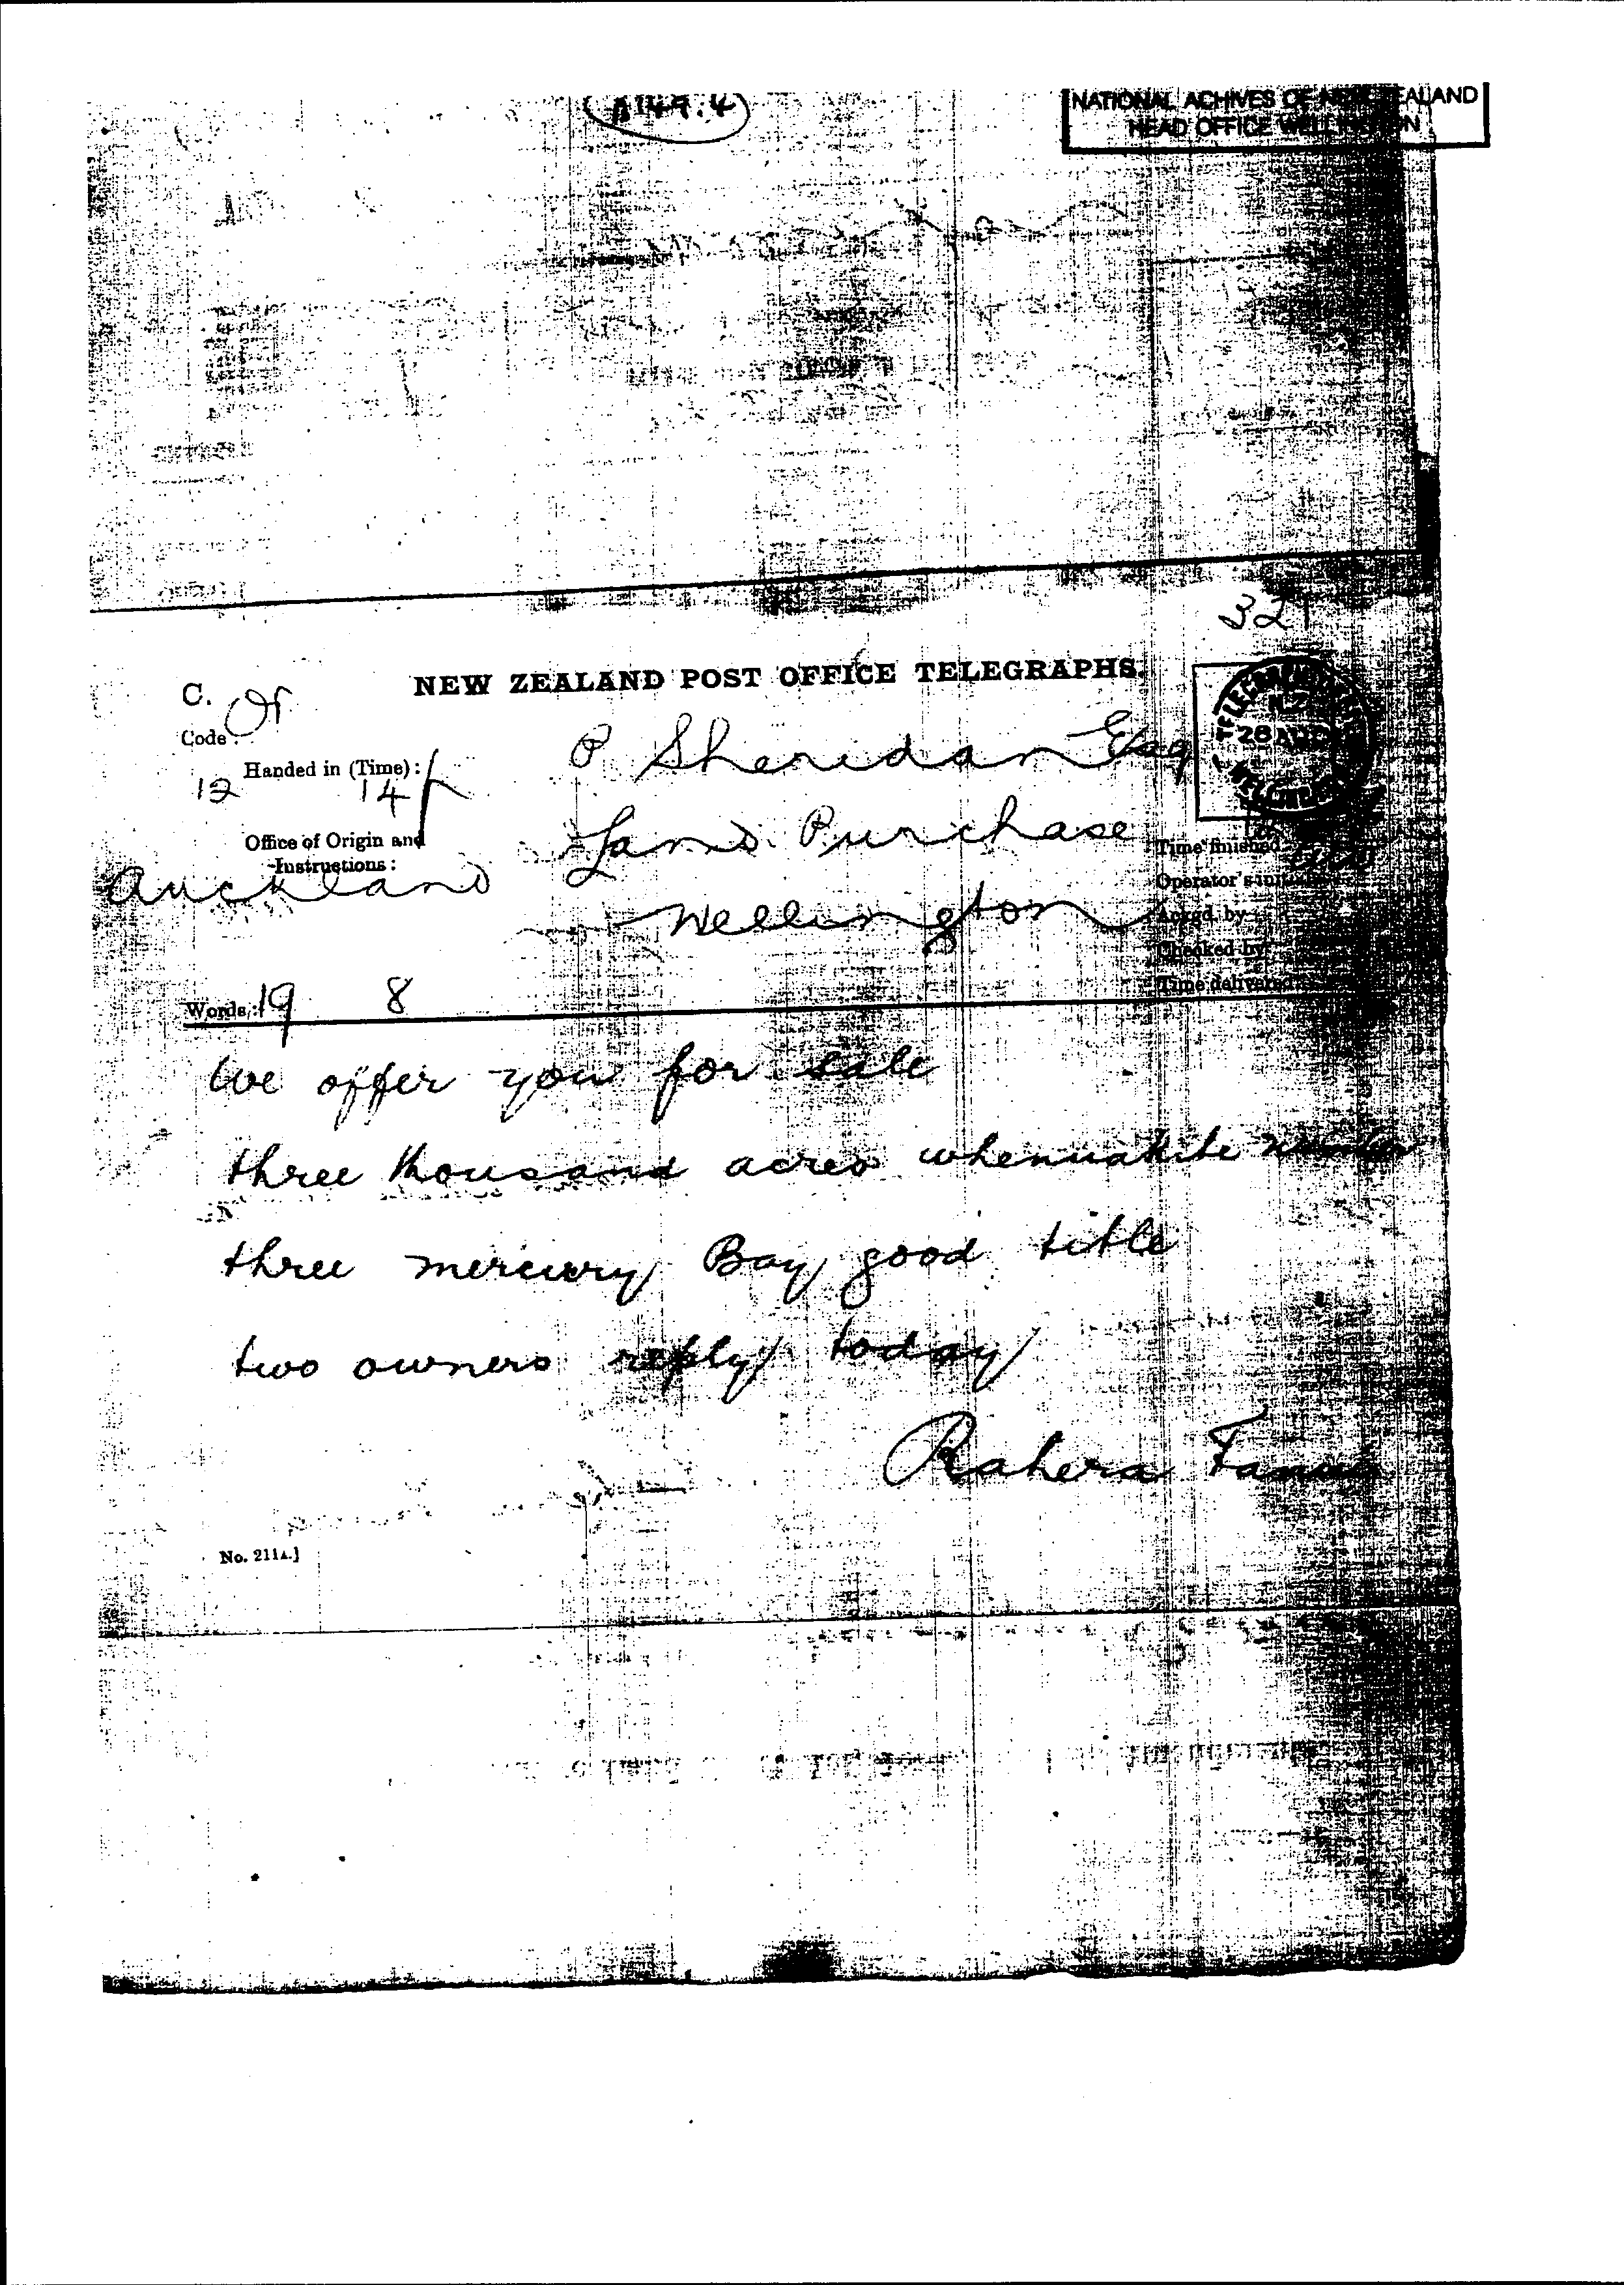 A149.4
NATIONAL ACHIVES OF NEW ZEALAND
HEAD OFFICE WELLINGTON
321
NEW ZEALAND POST OFFICE TELEGRAPHS.
C.
Code:
Handed in (Time):
12 14
Office of Origin and
Instructions:
Auckland
P Sheridan Esq
Land Purchase
Wellington
28
Time finished
Operator's
Ackgd. by
Checked by
Time delivered
Words: 19 8
We offer you for sale
three thousand acres whenuakite number
three mercury Bay good title
two owners reply today
Rahera
No. 211A.]